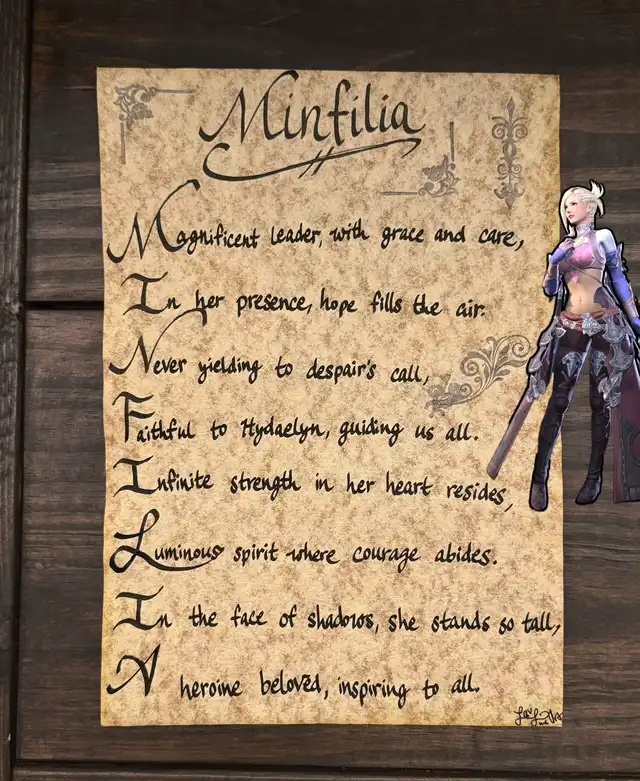 Minfilia
Magnificent leader, with grace and care,
In her presence, hope fills the air.
Never yielding to despair's call,
Faithful to Hydaelyn, guiding us all.
Infinite strength in her heart resides,
Luminous spirit where courage abides.
In the face of shadows, she stands so tall,
A heroine beloved, inspiring to all.